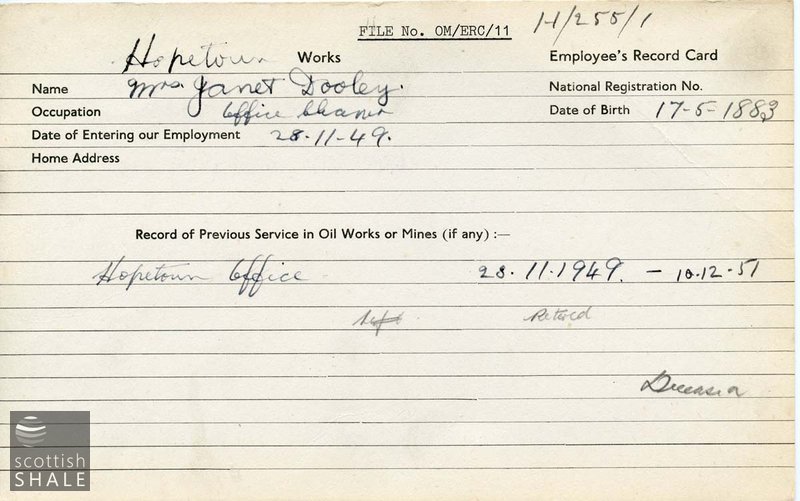 FILE No. OM/ERC/11 H/255/1
Hopetoun Works Employee's Record Card
Name Mrs. Janet Dooley. National Registration No.
Occupation Office Cleaner Date of Birth 17-5-1883
Date of Entering our Employment 28-11-49.
Home Address
Record of Previous Service in Oil Works or Mines (if any) :—
Hopetoun Office 28.11.1949. - 10.12.51
Left Retired
Deceased
scottish
SHALE